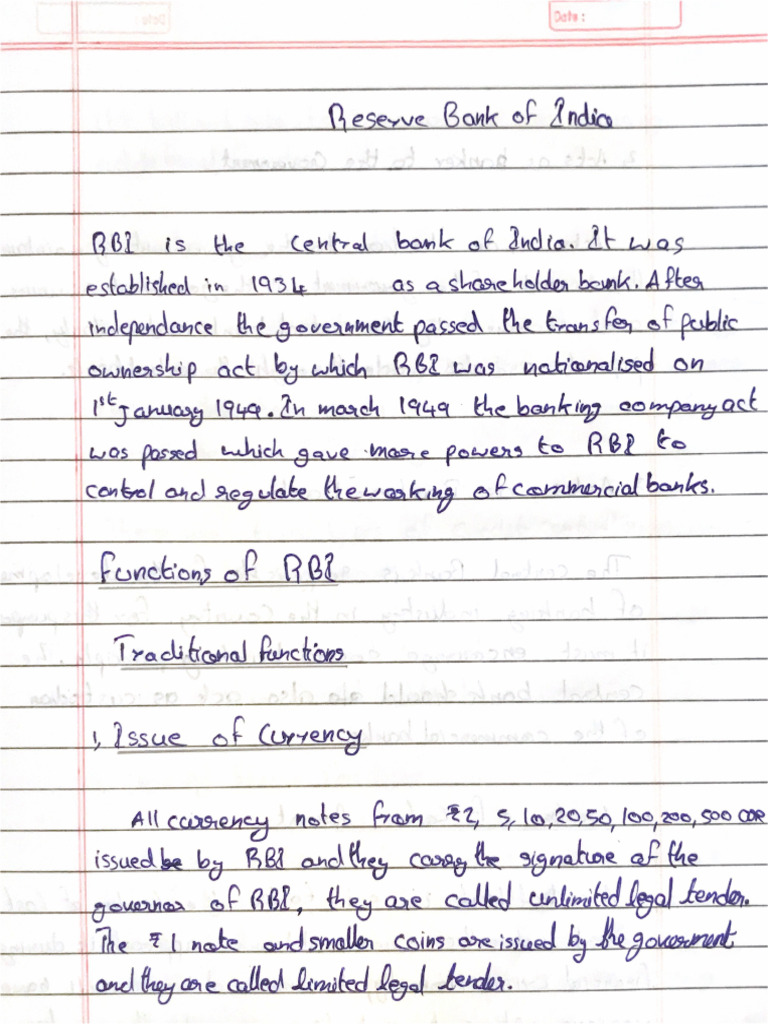 Date:
Reserve Bank of India
RBI is the central bank of India. It was
established in 1934 as a shareholder bank. After
independance the government passed the transfer of public
ownership act by which RBI was nationalised on
1st January 1949. In march 1949 the banking company act
was passed which gave more powers to RBI to
control and regulate the working of commercial banks.
Functions of RBI
Traditional functions
1, Issue of Currency
All currency notes from ₹2, 5, 10, 20, 50, 100, 200, 500 are
issued by RBI and they carry the signature of the
governor of RBI, they are called unlimited legal tender.
The ₹ 1 note and smaller coins are issued by the goverment
and they are called limited legal tender.